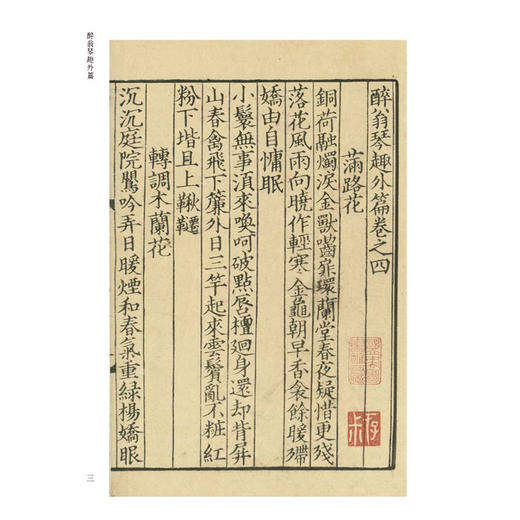 醉翁琴趣外篇
醉翁琴趣外篇卷之四
滿路花
銅荷融燭淚金獸嚙扉環蘭堂春夜疑惜更殘
落花風雨向曉作輕寒金龜朝早香衾餘暖殢
嬌由自慵眠
小鬟無事須來喚呵破點唇檀廻身還却背屏
山春禽飛下簾外日三竿起來雲鬢亂不粧紅
粉下堦且上鞦韆
轉調木蘭花
沉沉庭院鸎吟弄日暖煙和春氣重綠楊嬌眼
三